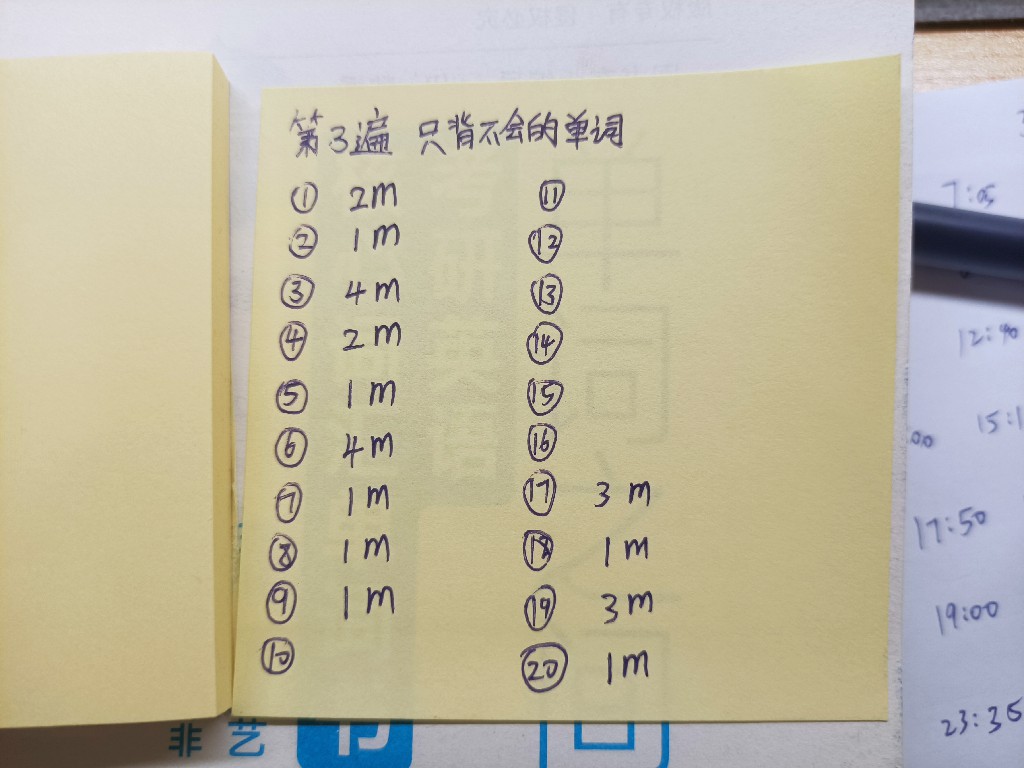 第3遍 只背不会的单词
① 2m
② 1m
③ 4m
④ 2m
⑤ 1m
⑥ 4m
⑦ 1m
⑧ 1m
⑨ 1m
⑩
⑪
⑫
⑬
⑭
⑮
⑯
⑰ 3m
⑱ 1m
⑲ 3m
⑳ 1m
非 艺
7:05
12:40
17:50
19:00